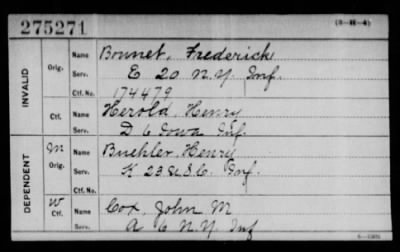 275271
(3-H-4)
INVALID
Orig.
Name Bonnet, Frederick
Serv. E 20 N.Y. Inf.
Ctf. No. 174479
Ctf.
Name Herold, Henry
Serv. D 6 Iowa Inf.
DEPENDENT
M
Orig.
Name Buehler, Henry
Serv. K 23 U.S.C. Inf.
Ctf. No.
W
Ctf.
Name Cox, John M
Serv. A 6 N.Y. Inf